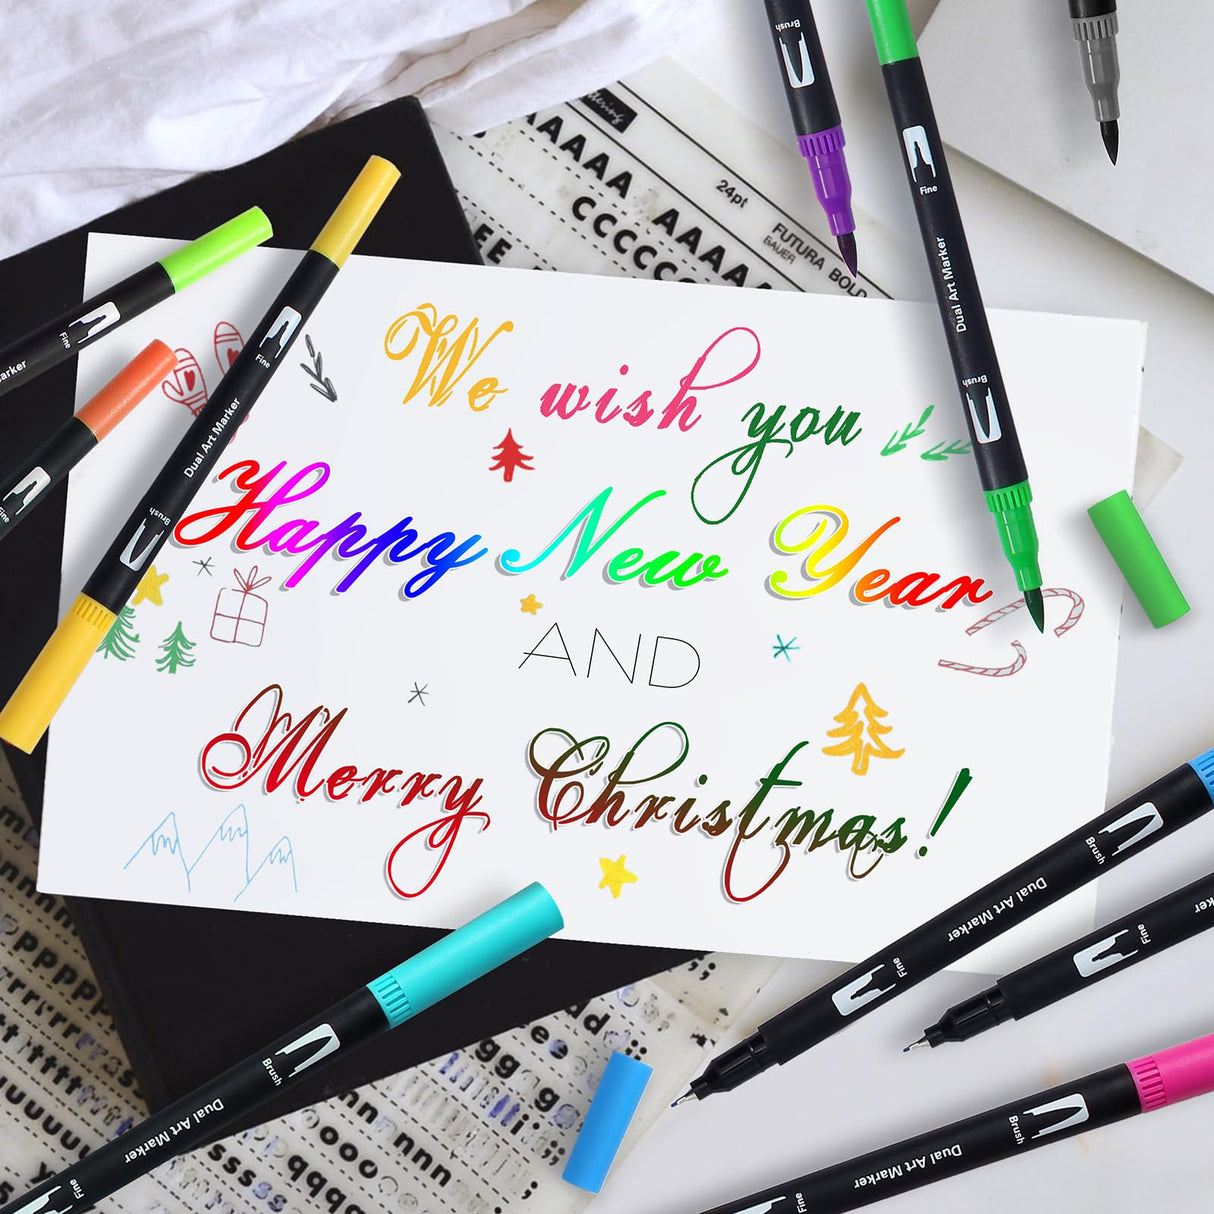 Brush
Fine
Dual Art Marker
Brush
24pt
FUTURA BOLD
BAUER
AAAAA AAAAA
CCCCCC
EE
Fine
arker
Fine
Dual Art Marker
Brush
Fine
We wish you
Happy New Year
AND
Merry Christmas!
Brush
Dual Art Marker
Fine
Fine
Brush
Dual Art Marker
Fine
Brush
Dual Art Marker
Fine